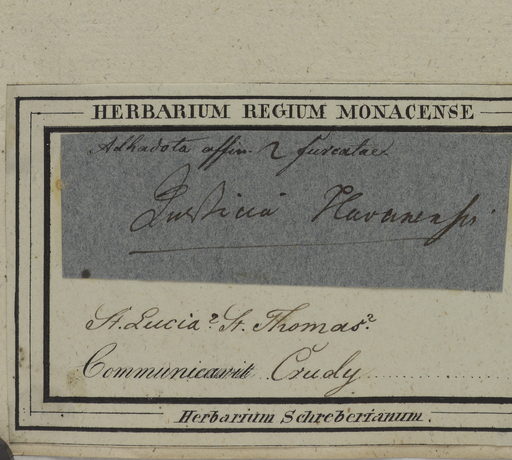 HERBARIUM REGIUM MONACENSE
Adhadota affin. 2 furcatae.
Justicia Havanensis
St. Lucia? St. Thomas?
Communicavit Crudy
Herbarium Schreberianum.